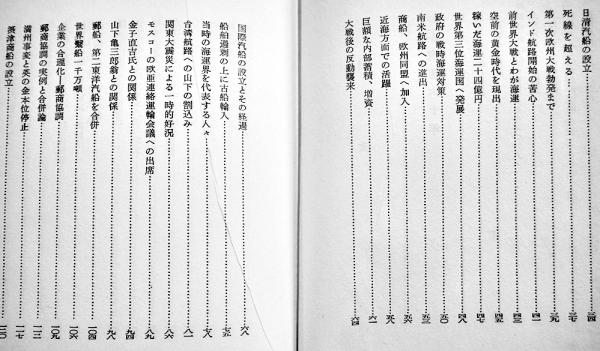 日清汽船の設立…三四
死線を超える…三七
第一次欧州大戦勃発まで…三九
インド航路開始の苦心…四一
前世界大戦とわが海運…四三
空前の黄金時代を現出…四五
稼いだ海運二十四億円…四七
世界第三位海運国へ発展…四八
政府の戦時海運対策…五〇
南米航路への進出…五三
商船、欧州同盟へ加入…五五
近海方面での活躍…五八
巨額な内部蓄積、増資…六一
大戦後の反動襲来…六四
国際汽船の設立とその経過…六八
船舶過剰の上に古船輸入…七五
当時の海運界を代表する人々…七八
台湾航路への山下の割込み…八一
関東大震災による一時的好況…八六
モスコーの欧亜連絡運輸会議への出席…八九
金子直吉氏との関係…九四
山下亀三郎翁との関係…九八
郵船、第二東洋汽船を合併…一〇四
世界繋船一千万噸…一〇六
企業の合理化―郵商協調…一〇九
郵商協調の実例と合併論…一一三
満州事変と英の金本位停止…一一七
摂津商船の設立…一二〇